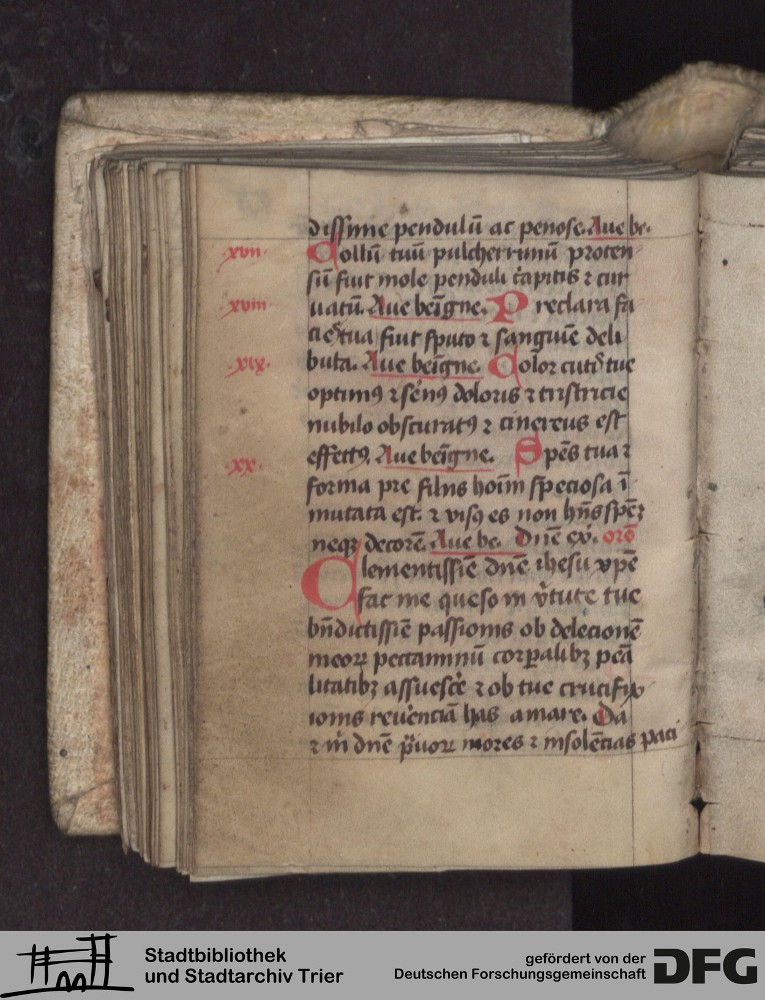 dissime pendulū ac penose. Aue be.
.xvii. Collū tuū pulcherrimū proten
sū fuit mole penduli capitis ⁊ cur
.xviii. uatū. Aue beīgne. Preclara fa
cies tua fuit sputo ⁊ sanguīe deli
.xix. buta. Aue beīgne. Color cutis tue
optimꝰ ⁊ sēnꝰ doloris ⁊ tristricie
nubilo obscuratꝰ ⁊ cinereus est
.xx. effectꝰ. Aue beīgne. Spēs tua ⁊
forma pre filiis hoīm speciosa ī
mutata est. ⁊ visꝰ es non hn̄s spēꝫ
neqꝫ decorē. Aue be. Dn̄e ex̄. orō
Clementissīe dn̄e ihesu xp̄e
fac me queso in v̄tute tue
bn̄dictissīe passionis ob delecionē
meoꝝ peccaminū corꝑalibꝫ pēa
litatibꝫ assuesc̄e ⁊ ob tue crucifix
ionis reuēnciā has amare. Da
⁊ m̄ dn̄e p̄uoꝝ mores ⁊ insolēcias paci
Stadtbibliothek
und Stadtarchiv Trier
gefördert von der
Deutschen Forschungsgemeinschaft
DFG